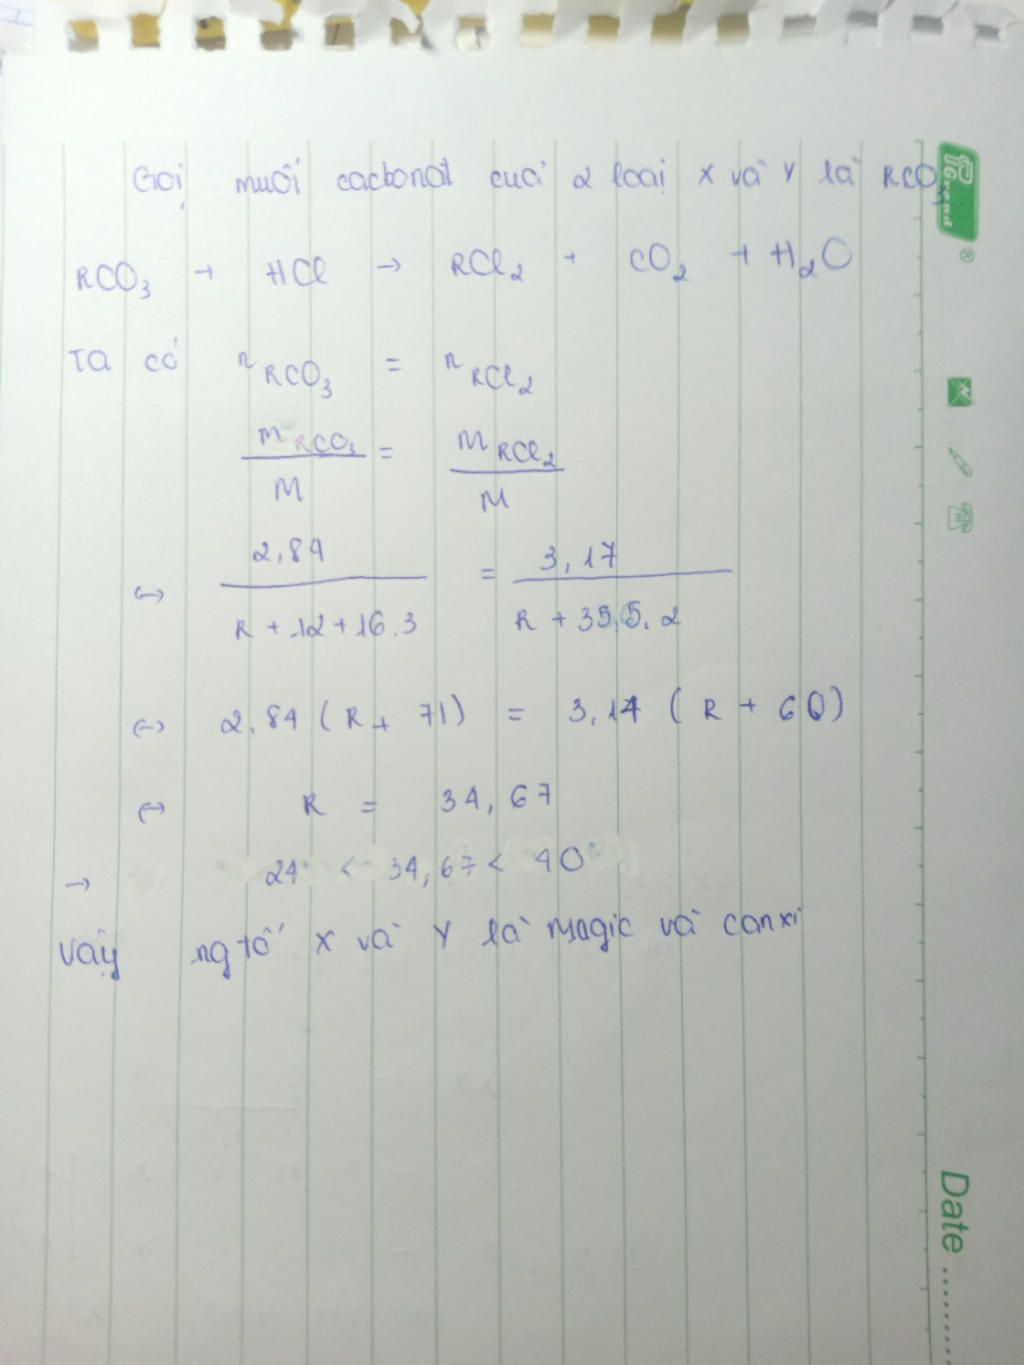 Gọi muối cacbonat của 2 loại X và Y là RCO3
RCO3 + HCl → RCl2 + CO2 + H2O
Ta có nRCO3 = nRCl2
mRCO3/M = mRCl2/M
↔ 2,84/(R + 12 + 16.3) = 3,17/(R + 35,5.2)
↔ 2,84 (R + 71) = 3,17 (R + 60)
↔ R = 34,67
→ 24 < 34,67 < 40
Vậy ng tố X và Y là Magie và canxi
TiGrand
®
Date ..........